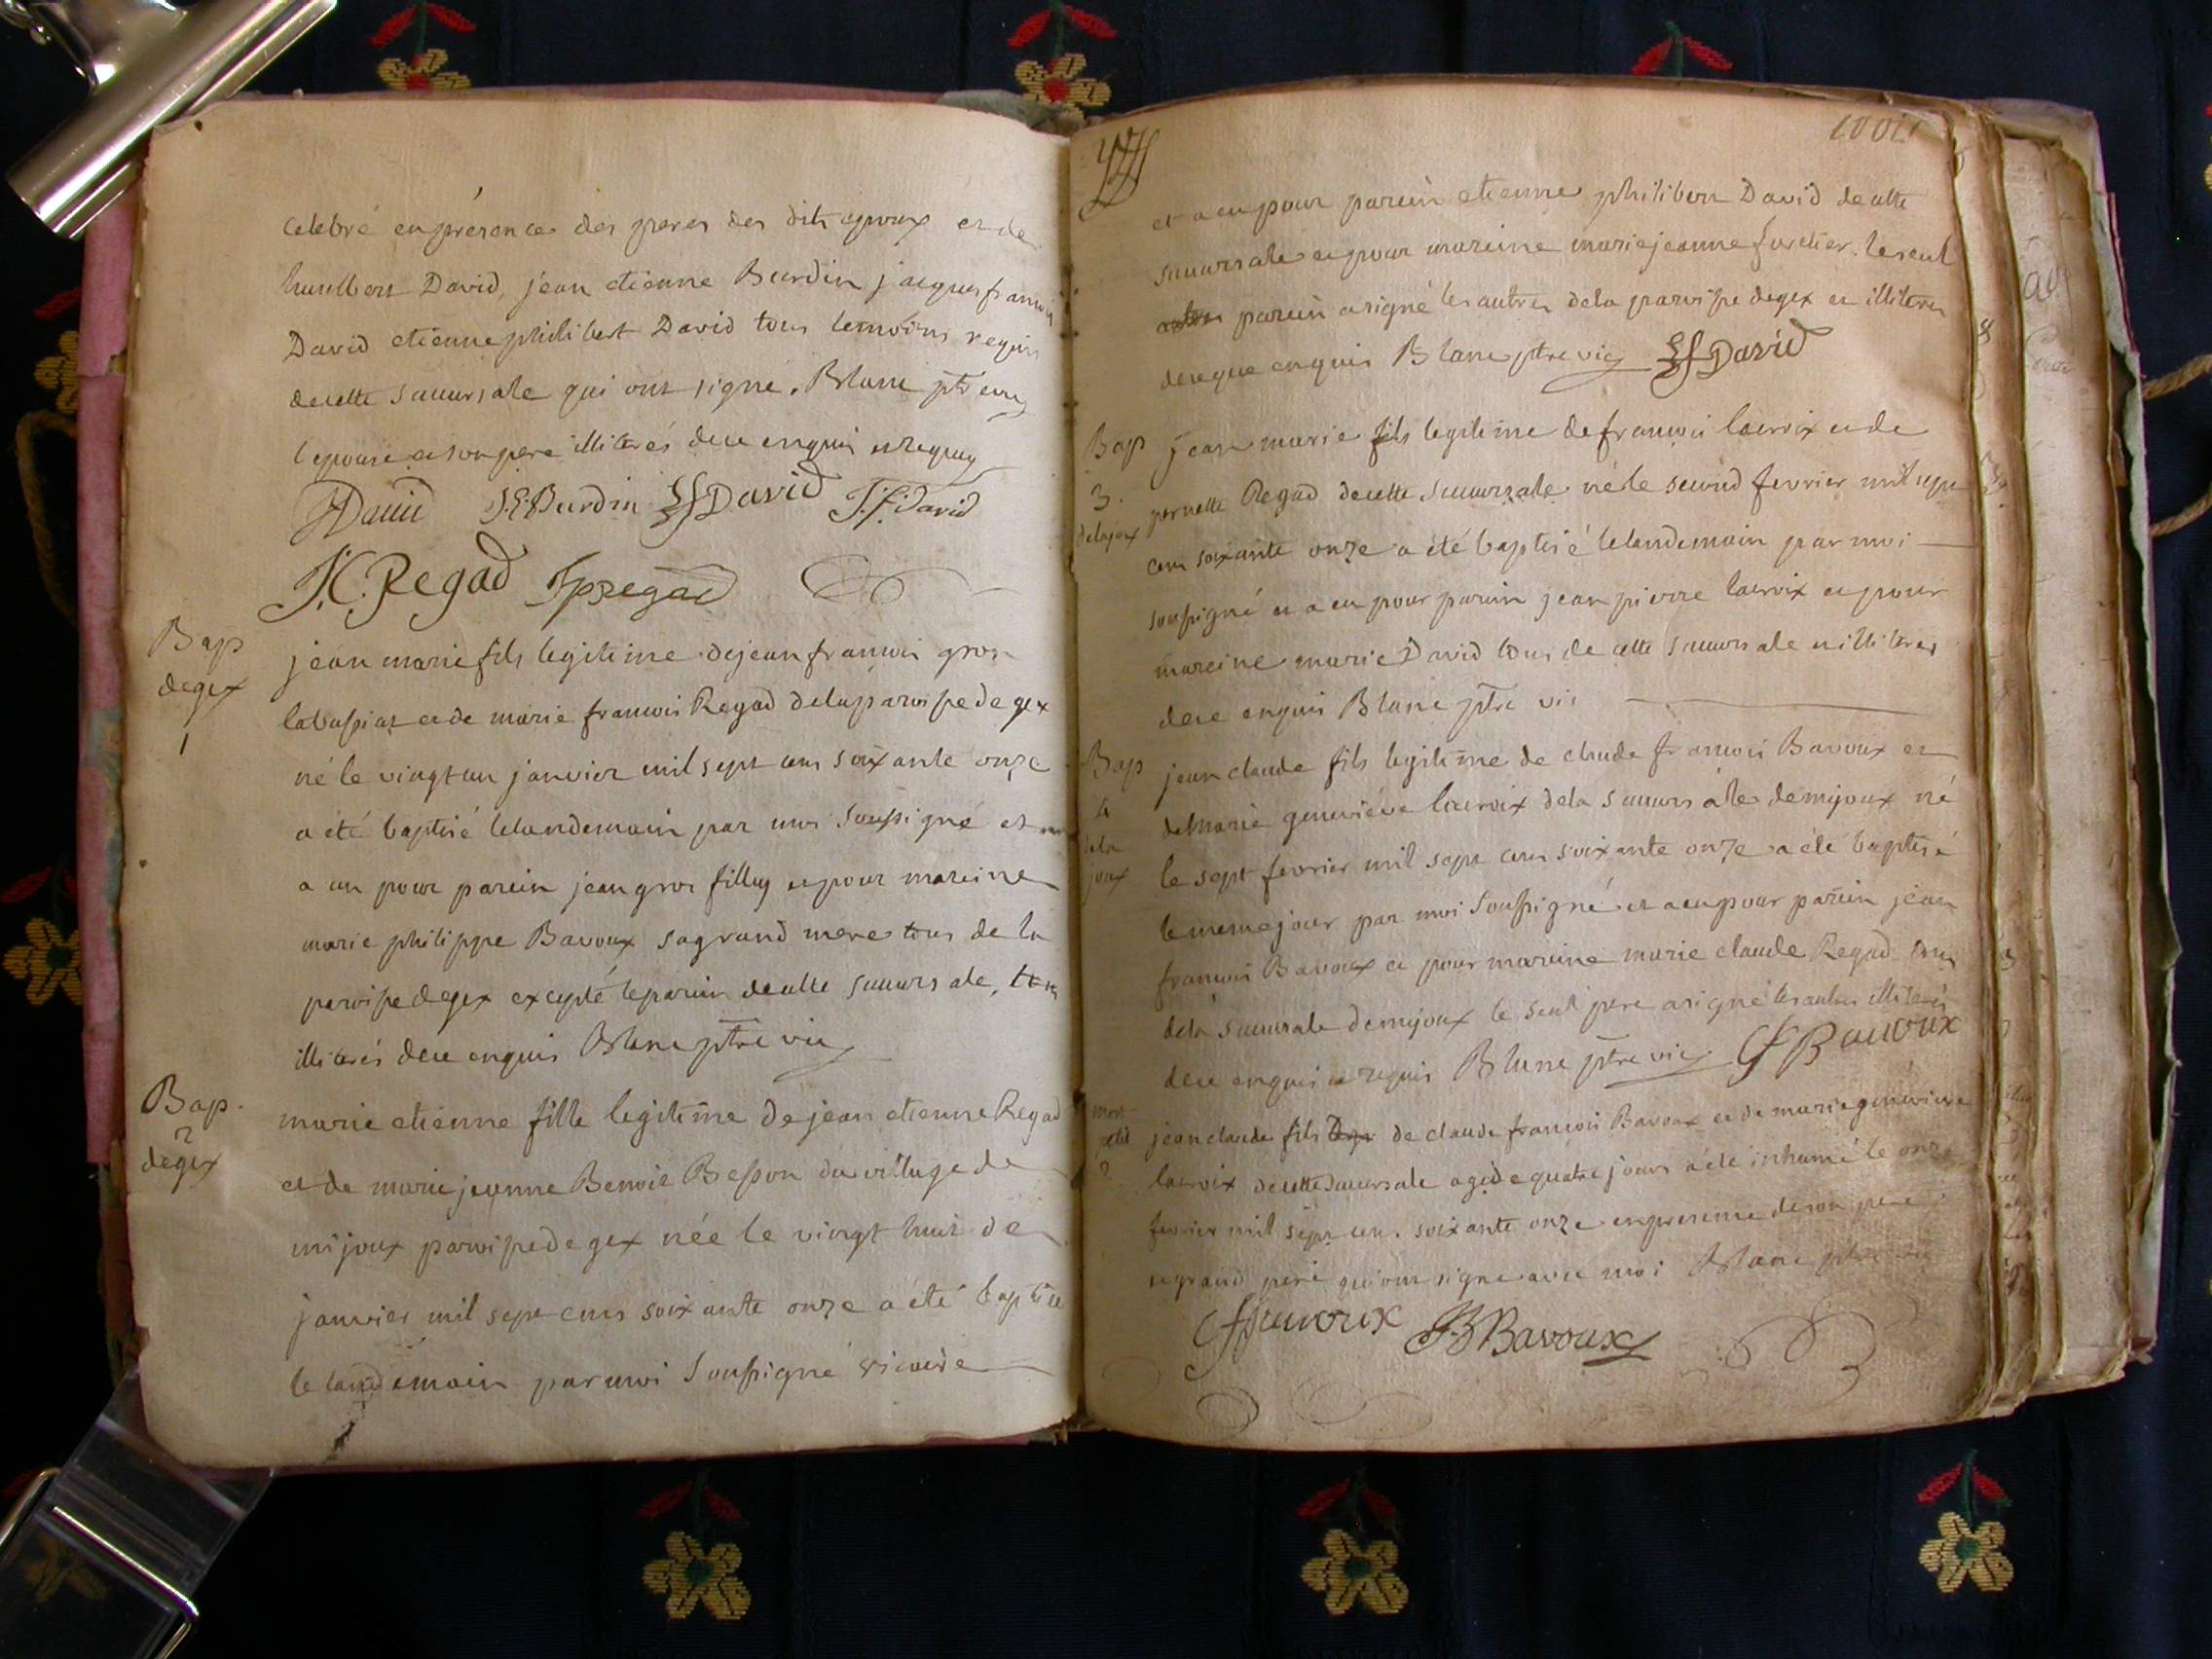 celebré en présence des peres des dits epoux et de
humbert David, jean etienne Burdin jacques francois
David etienne philibert David tous temoins requis
de cette succursale qui ont signé. Blanc ptre vic
l'epouse et son pere illiterés de ce enquis et requis
HDavid J.E.Burdin EfDavid J.f.David
J.C.Regad Jpregad
Bap
degex
1
jean marie fils legitime de jean francois gros
et de marie francois Regad de la paroisse de gex
né le vingt un janvier mil sept cens soixante onze
a été baptisé le landemain par moi soussigné et
a eu pour parein jean gros et pour mareine
marie philippe Bavoux sa grand mere tous de la
paroisse de gex excepté le parein de cette succursale, tous
illiterés de ce enquis Blanc ptre vic
Bap.
2
degex
marie etienne fille legitime de jean etienne Regad
et de marie jeanne Benoit Besson du village de
mijoux paroisse de gex née le vingt huit de
janvier mil sept cens soixante onze a été baptisée
le landemain par moi soussigné vicaire
et a eu pour parein etienne philibert David de cette
succursale et pour mareine marie jeanne . le seul
parein a signé les autres de la paroisse de gex et illiterés
de ce que enquis Blanc ptre vic EfDavid
Bap
3.
delajoux
jean marie fils legitime de francois lacroix et de
pernette Regad de cette succursale né le second fevrier mil sept
cens soixante onze a été baptisé le landemain par moi
soussigné et a eu pour parein jean pierre lacroix et pour
mareine marie David tous de cette succursale et illiteres
de ce enquis Blanc ptre vic
Bap
4
dela
joux
jean claude fils legitime de claude francois Bavoux et
de Marie geneviéve lacroix de la succursale de mijoux né
le sept fevrier mil sept cens soixante onze a été baptisé
le meme jour par moi soussigné et a eu pour parein jean
francois Bavoux et pour mareine marie claude Regad tous
de la succursale de mijoux le seul pere a signé les autres illiterés
de ce enquis et requis Blanc ptre vic CfBauoux
mort
petit
jean claude fils de claude francois Bavoux et de marie geneviéve
lacroix de cette succursale agé de quatre jours a été inhumé le onze
fevrier mil sept cens soixante onze en presence de son pere
et grand pere qui ont signé avec moi Blanc ptre vic
Cfbauoux JBBavoux